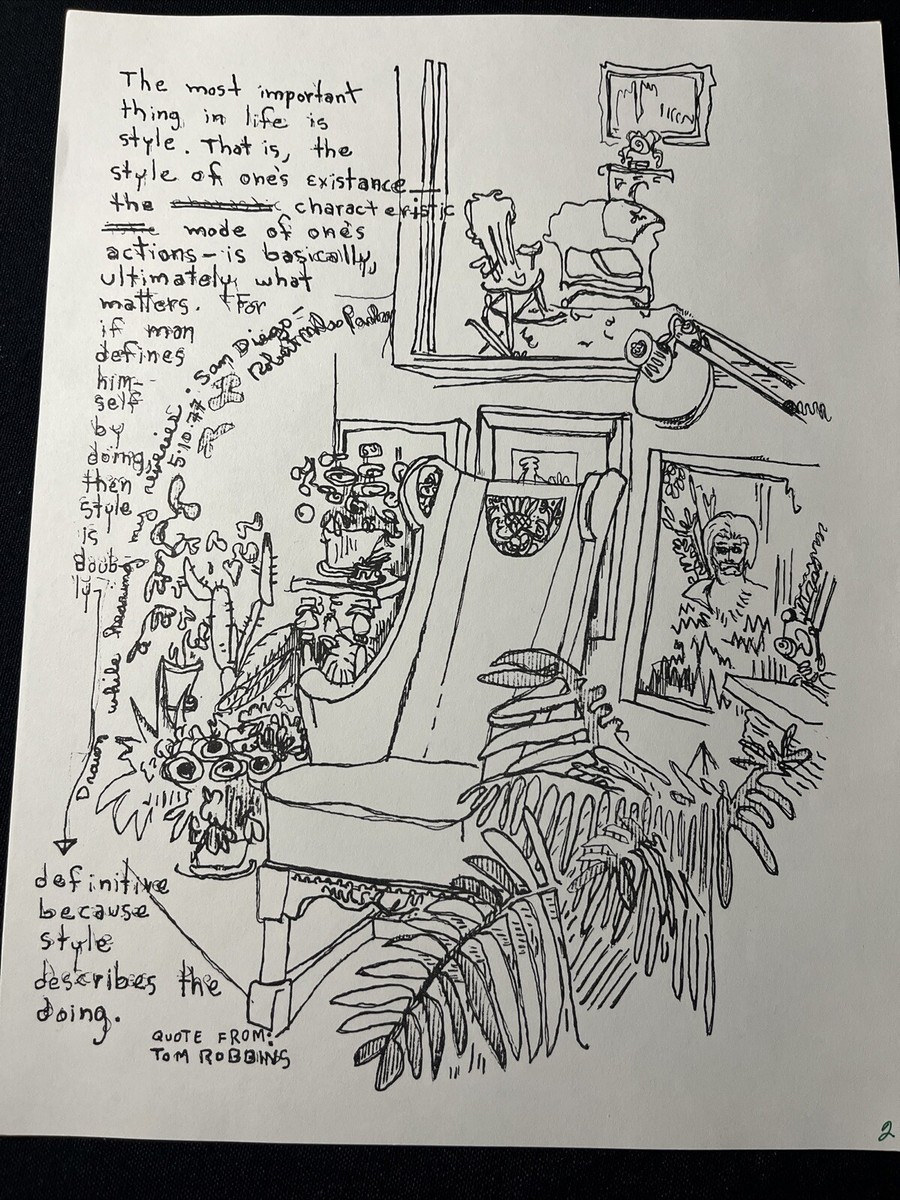 The most important
thing in life is
style. That is, the
style of one's existance—
the characteristic
mode of one's
actions — is basically,
ultimately, what
matters. For
if man
defines
him-
self
by
doing,
then
style
is
doub-
ly
definitive
because
style
describes the
doing.
QUOTE FROM:
TOM ROBBINS
Drawn while hearing my reveries 5·10·77 · San Diego —
Robert Miles Parker
2